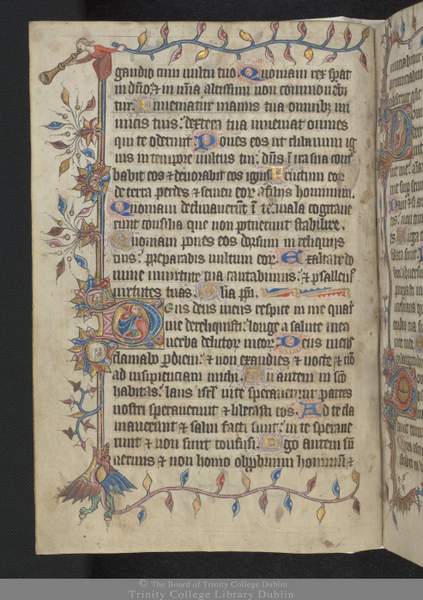 gaudio cum uultu tuo. Quoniam rex sp̄at
in dn̄o: ⁊ in mīa altissimi non commouebi
tur. Inueniatur manus tua omnibꝫ ini
micis tuis: dextera tua inueniat omnes
qui te oderunt. Pones eos ut clibanum ig
nis in tempore uultus tui: dn̄s ī ira sua cont᷑
babit eos ⁊ deuorabit eos ignis. Fructum eoꝝ
de terra perdes ⁊ semen eoꝝ a filiis hominum.
Quoniam declinauerūt ī te mala cogitaue
runt consilia que non potuerunt stabilire.
Quoniam pones eos dorsum in reliquijs
tuis: preparabis uultum eoꝝ. Exaltare do
mine in uirtute tua cantabimus: ⁊ psallem᷒
uirtutes tuas. Glia pr̄i.
Deus deus meus respice in me quare
me dereliquisti: longe a salute mea
uerba delictoꝝ meoꝝ. Deus meus
clamabo ꝑ diem: ⁊ non exaudies ⁊ nocte ⁊ nō
ad insipienciam michi. Tu autem in sc̄o
habitas: laus isrl̄ in te sperauerunt patres
nostri sperauerunt ⁊ liberasti eos. Ad te cla
mauerunt ⁊ salui facti sunt: in te speraue
runt ⁊ non sunt confusi. Ego autem sū
uermis ⁊ non homo obprobrium hominū ⁊
© The Board of Trinity College Dublin
Trinity College Library Dublin